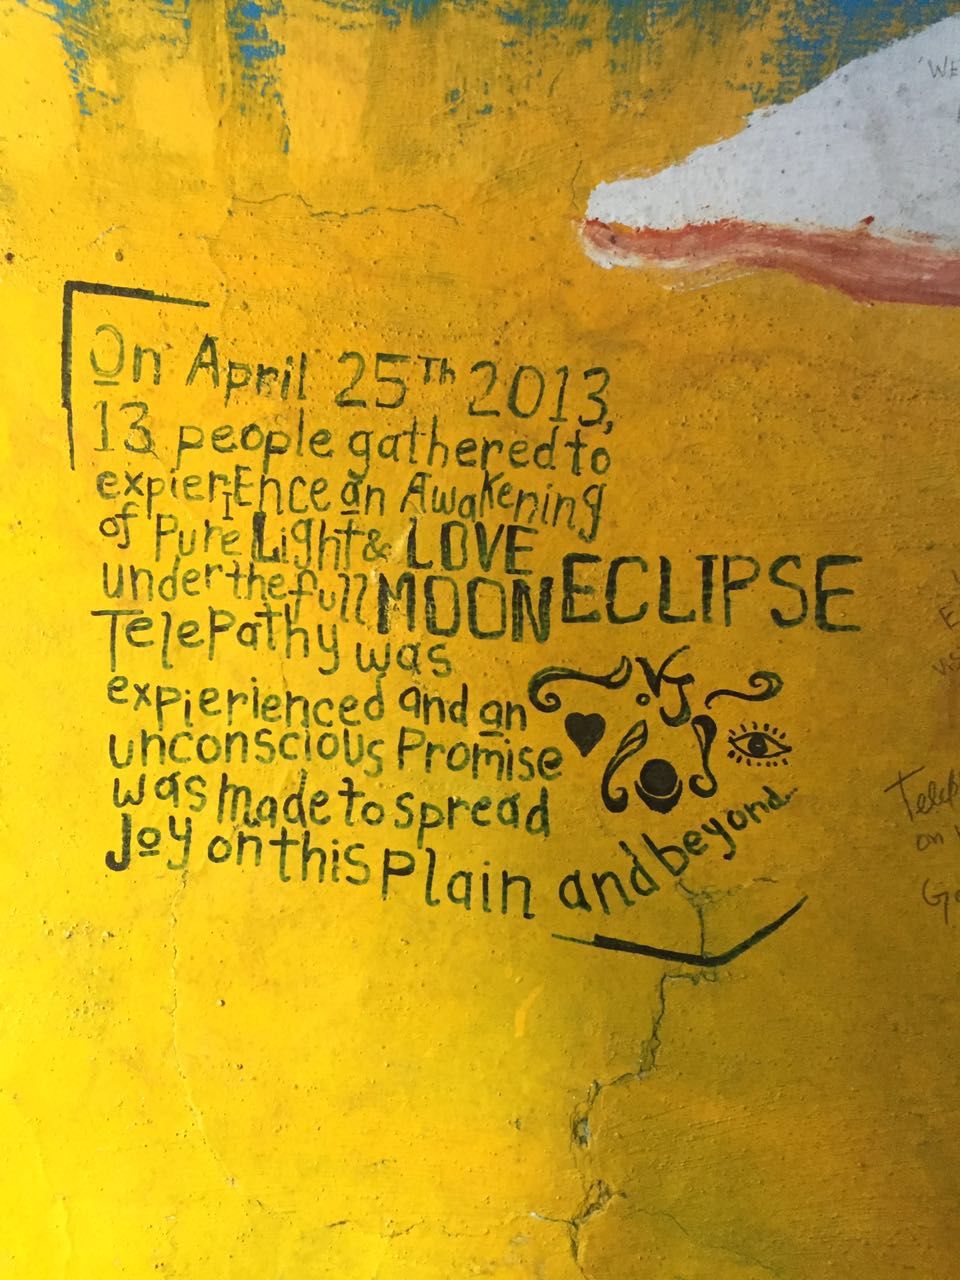 On April 25Th 2013,
13 people gathered to
expierIEnce an Awakening
of Pure Light & LOVE
under the full MOON ECLIPSE
TelePathy was
expierienced and an
unconscious Promise
was made to spread
Joy on this Plain and beyond..
'WE
Telep
on